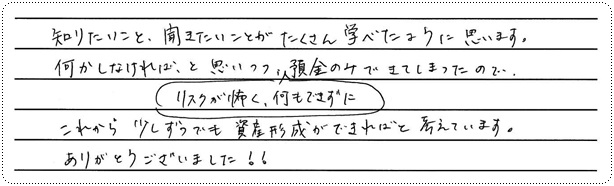 知りたいこと、聞きたいことがたくさん学べたように思います。
何かしなければ、と思いつつ、預金のみできてしまったので、
リスクが怖く、何もできずに
これから少しずつでも資産形成ができればと考えています。
ありがとうございました!!